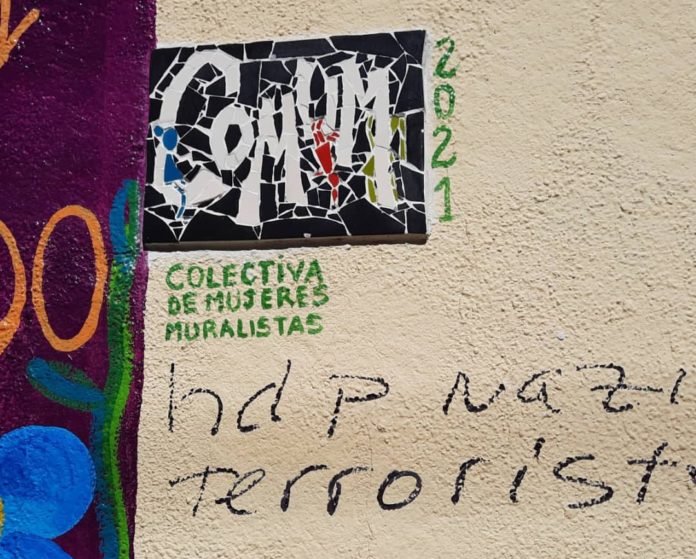 COMUM
2021
COLECTIVA
DE MUJERES
MURALISTAS
hdp nazi